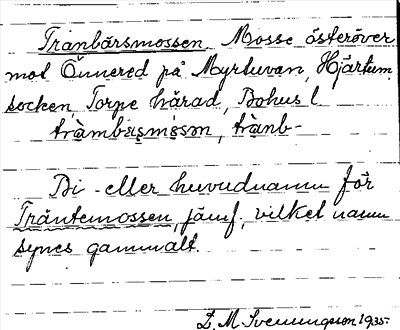 Tranbärsmossen. Mosse österöver
mot Önnered på Myrtuvan, Hjärtum
socken Torpe härad, Bohus l.
tràmbæsmɵsən, trànb-
Bi- eller huvudnamn för
Träntemossen, jämf., vilket namn
synes gammalt.
D. M. Svenungsson 1935.